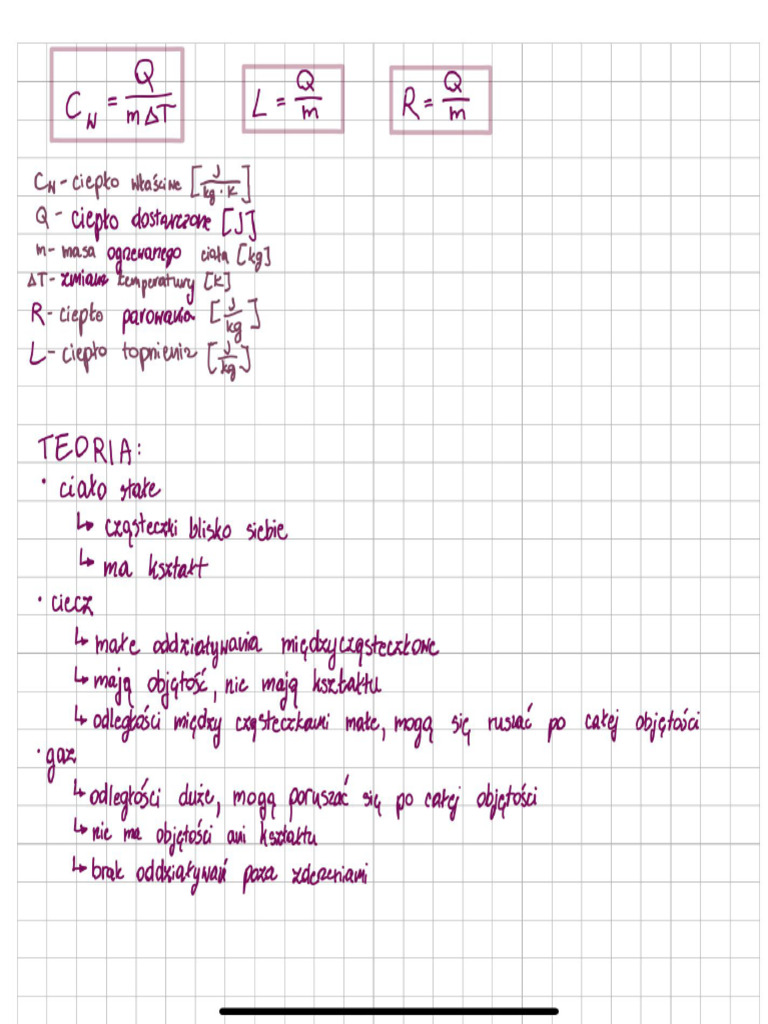 C_N = Q/(m ΔT)   L = Q/m   R = Q/m
C_N - ciepło właściwe [J/(kg · K)]
Q - ciepło dostarczone [J]
m - masa ogrzewanego ciała [kg]
ΔT - zmiana temperatury [K]
R - ciepło parowania [J/kg]
L - ciepło topnienia [J/kg]
TEORIA:
• ciało stałe
↳ cząsteczki blisko siebie
↳ ma kształt
• ciecz
↳ małe oddziaływania międzycząsteczkowe
↳ mają objętość, nie mają kształtu
↳ odległości między cząsteczkami małe, mogą się ruszać po całej objętości
• gaz
↳ odległości duże, mogą poruszać się po całej objętości
↳ nie ma objętości ani kształtu
↳ brak oddziaływań poza zderzeniami